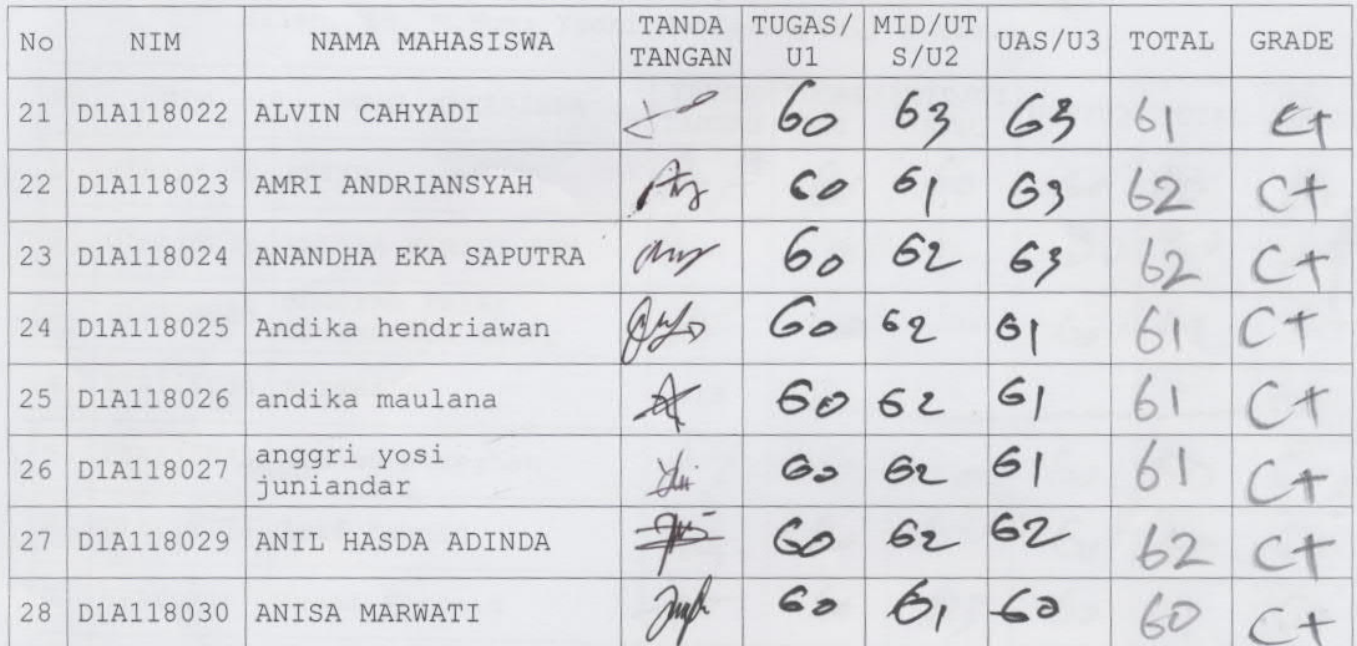 No NIM NAMA MAHASISWA TANDA TANGAN TUGAS/U1 MID/UTS/U2 UAS/U3 TOTAL GRADE
21 D1A118022 ALVIN CAHYADI 60 63 63 61 C+
22 D1A118023 AMRI ANDRIANSYAH 60 61 63 62 C+
23 D1A118024 ANANDHA EKA SAPUTRA 60 62 63 62 C+
24 D1A118025 Andika hendriawan 60 62 61 61 C+
25 D1A118026 andika maulana 60 62 61 61 C+
26 D1A118027 anggri yosi juniandar 60 62 61 61 C+
27 D1A118029 ANIL HASDA ADINDA 60 62 62 62 C+
28 D1A118030 ANISA MARWATI 60 61 60 60 C+